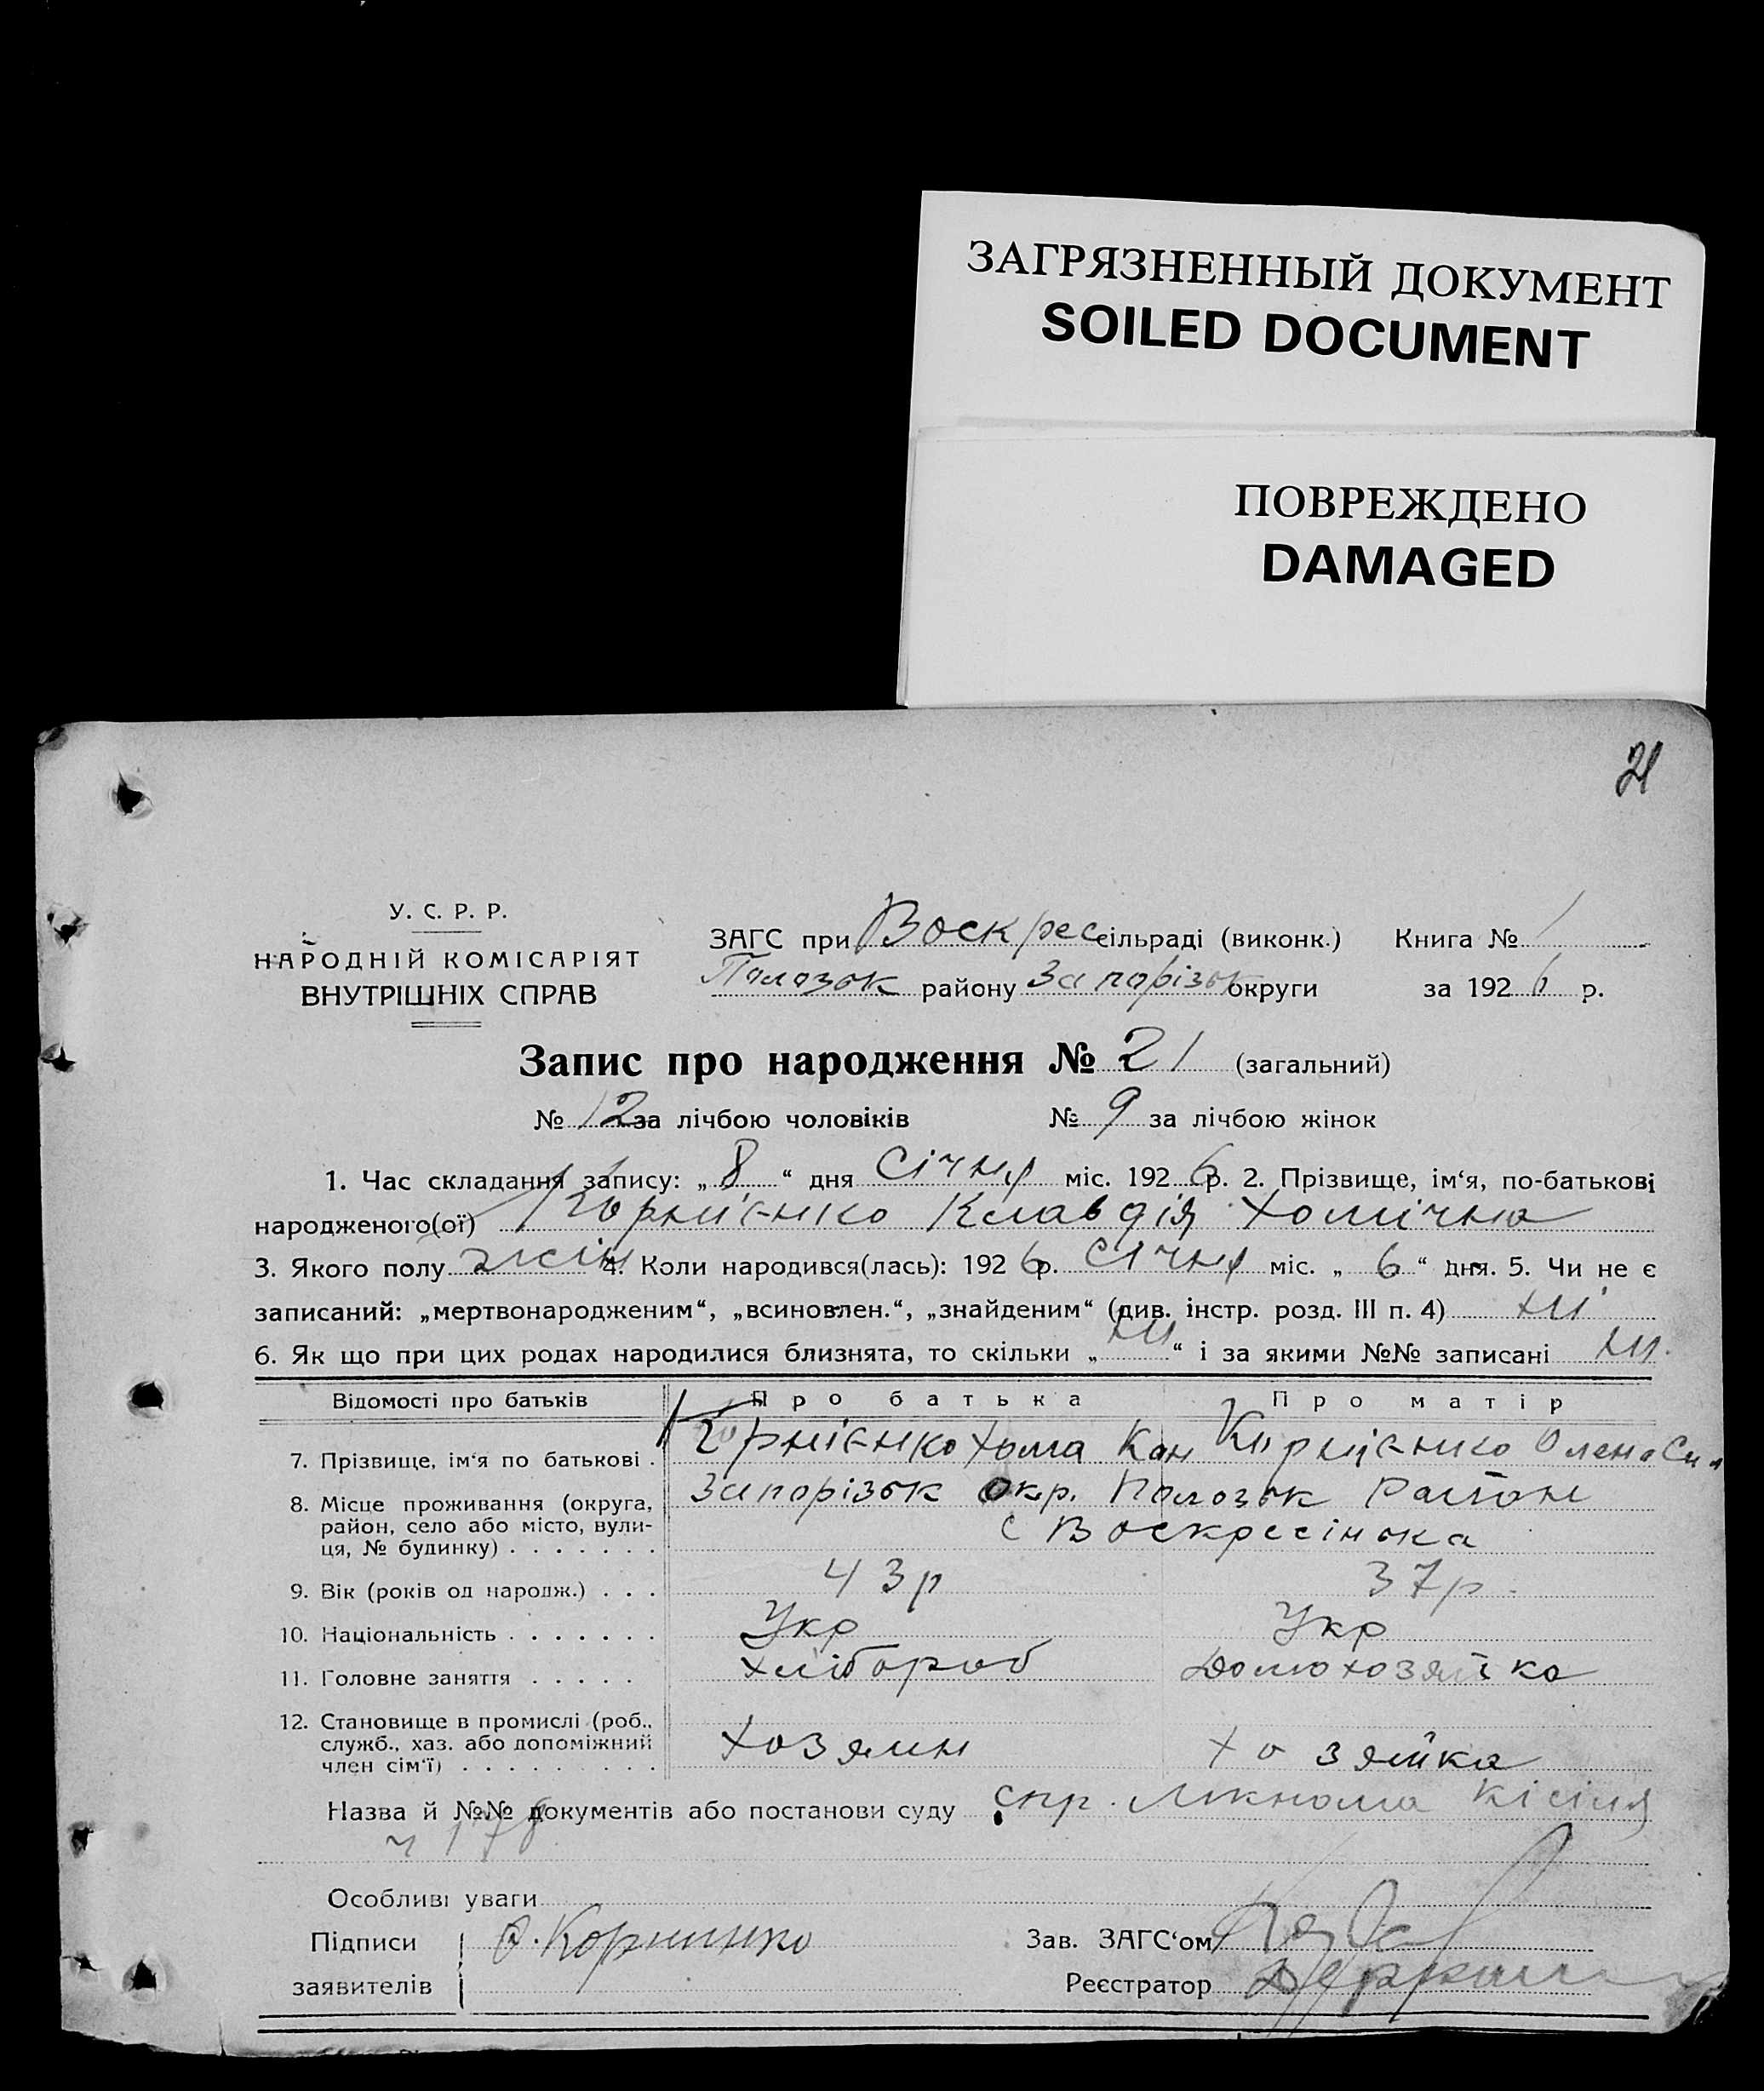 ЗАГРЯЗНЕННЫЙ ДОКУМЕНТ
SOILED DOCUMENT
ПОВРЕЖДЕНО
DAMAGED
21
У. С. Р. Р.
НАРОДНІЙ КОМІСАРІЯТ
ВНУТРІШНІХ СПРАВ
ЗАГС при Воскрес сільраді (виконк.) Книга № 1
Пологзьк району Запорізьк округи за 1926 р.
Запис про народження № 21 (загальний)
№ 12 за лічбою чоловіків № 9 за лічбою жінок
1. Час складання запису: „ 8 “ дня Січня міс. 1926 р. 2. Прізвище, ім‘я, по-батькові
народженого(ої) Корнієнко Клавдія Хомічна
3. Якого полу жін 4. Коли народився(лась): 1926 р. Січня міс. „ 6 “ дня. 5. Чи не є
записаний: „мертвонародженим“, „всиновлен.“, „знайденим“ (див. інстр. розд. III п. 4) ні
6. Як що при цих родах народилися близнята, то скільки „ ні “ і за якими №№ записані ні.
Відомості про батьків Про батька Про матір
7. Прізвище, ім‘я по батькові . Корнієнко Хома Кон Корнієнко Олена Сил
8. Місце проживання (округа, Запорізьк окр. Полозьк Район
район, село або місто, вули- с Воскресінька
ця, № будинку) . . . . . . .
9. Вік (років од народж.) . . . 43р 37р.
10. Національність . . . . . . . Укр Укр
11. Головне заняття . . . . . Хлібороб Домохозяйка
12. Становище в промислі (роб.,
служб., хаз. або допоміжний Хозяин хозяйка
член сім‘ї) . . . . . . . . .
Назва й №№ документів або постанови суду спр. Кісіля
ч 178
Особливі уваги
Підписи О. Корниенко Зав. ЗАГС‘ом
заявителів Реєстратор